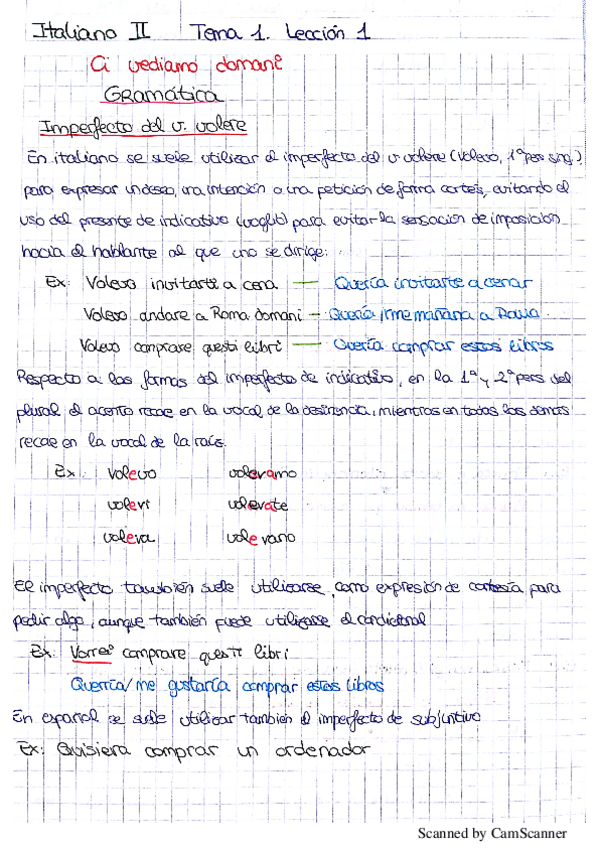 Italiano II Tema 1. Lección 1
Ci vediamo domani
Gramática
Imperfecto del v. volere
En italiano se suele utilizar el imperfecto del v. volere (volevo, 1ª pers sing.)
para expresar un deseo, una intención o una petición de forma cortés, evitando el
uso del presente de indicativo (voglio) para evitar la sensación de imposición
hacia el hablante al que uno se dirige:
Ex: Volevo invitarte a cena — Quería invitarte a cenar
Volevo andare a Roma domani – Quería irme mañana a Roma.
Volevo comprare questi libri — Quería comprar estos libros
Respecto a las formas del imperfecto de indicativo, en la 1ª y 2ª pers del
plural el acento recae en la vocal de la desinencia, mientras en todas las demás
recae en la vocal de la raíz.
Ex: volevo volevamo
volevi volevate
voleva volevano
El imperfecto también suele utilizarse como expresión de cortesía para
pedir algo, aunque también puede utilizarse el condicional
Ex: Vorrei comprare questi libri
Querría/me gustaría comprar estos libros
En español se suele utilizar también el imperfecto de subjuntivo
Ex: Quisiera comprar un ordenador
Scanned by CamScanner